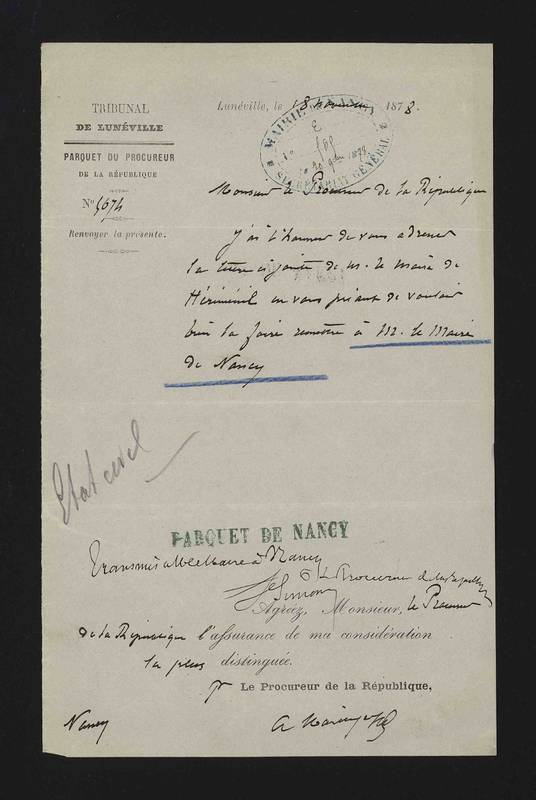 TRIBUNAL
DE LUNÉVILLE
PARQUET DU PROCUREUR
DE LA RÉPUBLIQUE
N° 4074
Renvoyer la présente.
Lunéville, le 18 novembre 1878.
MAIRIE DE NANCY
SECRÉTARIAT GÉNÉRAL
Monsieur le Procureur de la République
J'ai l'honneur de vous adresser
la lettre ci-jointe de M. le Maire de
Hériménil en vous priant de vouloir
bien la faire remettre à M. le Maire
de Nancy
Etat civil
PARQUET DE NANCY
Transmis à M. le Maire à Nancy
Le Procureur de la République
Simon
Agréez, Monsieur, le Procureur
de la République l'assurance de ma considération
la plus distinguée.
Le Procureur de la République,
Nancy